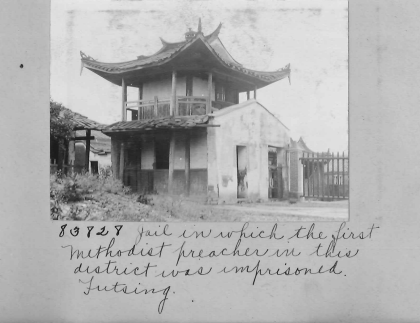 83828 Jail in which the first
Methodist preacher in this
district was imprisoned.
Futsing.